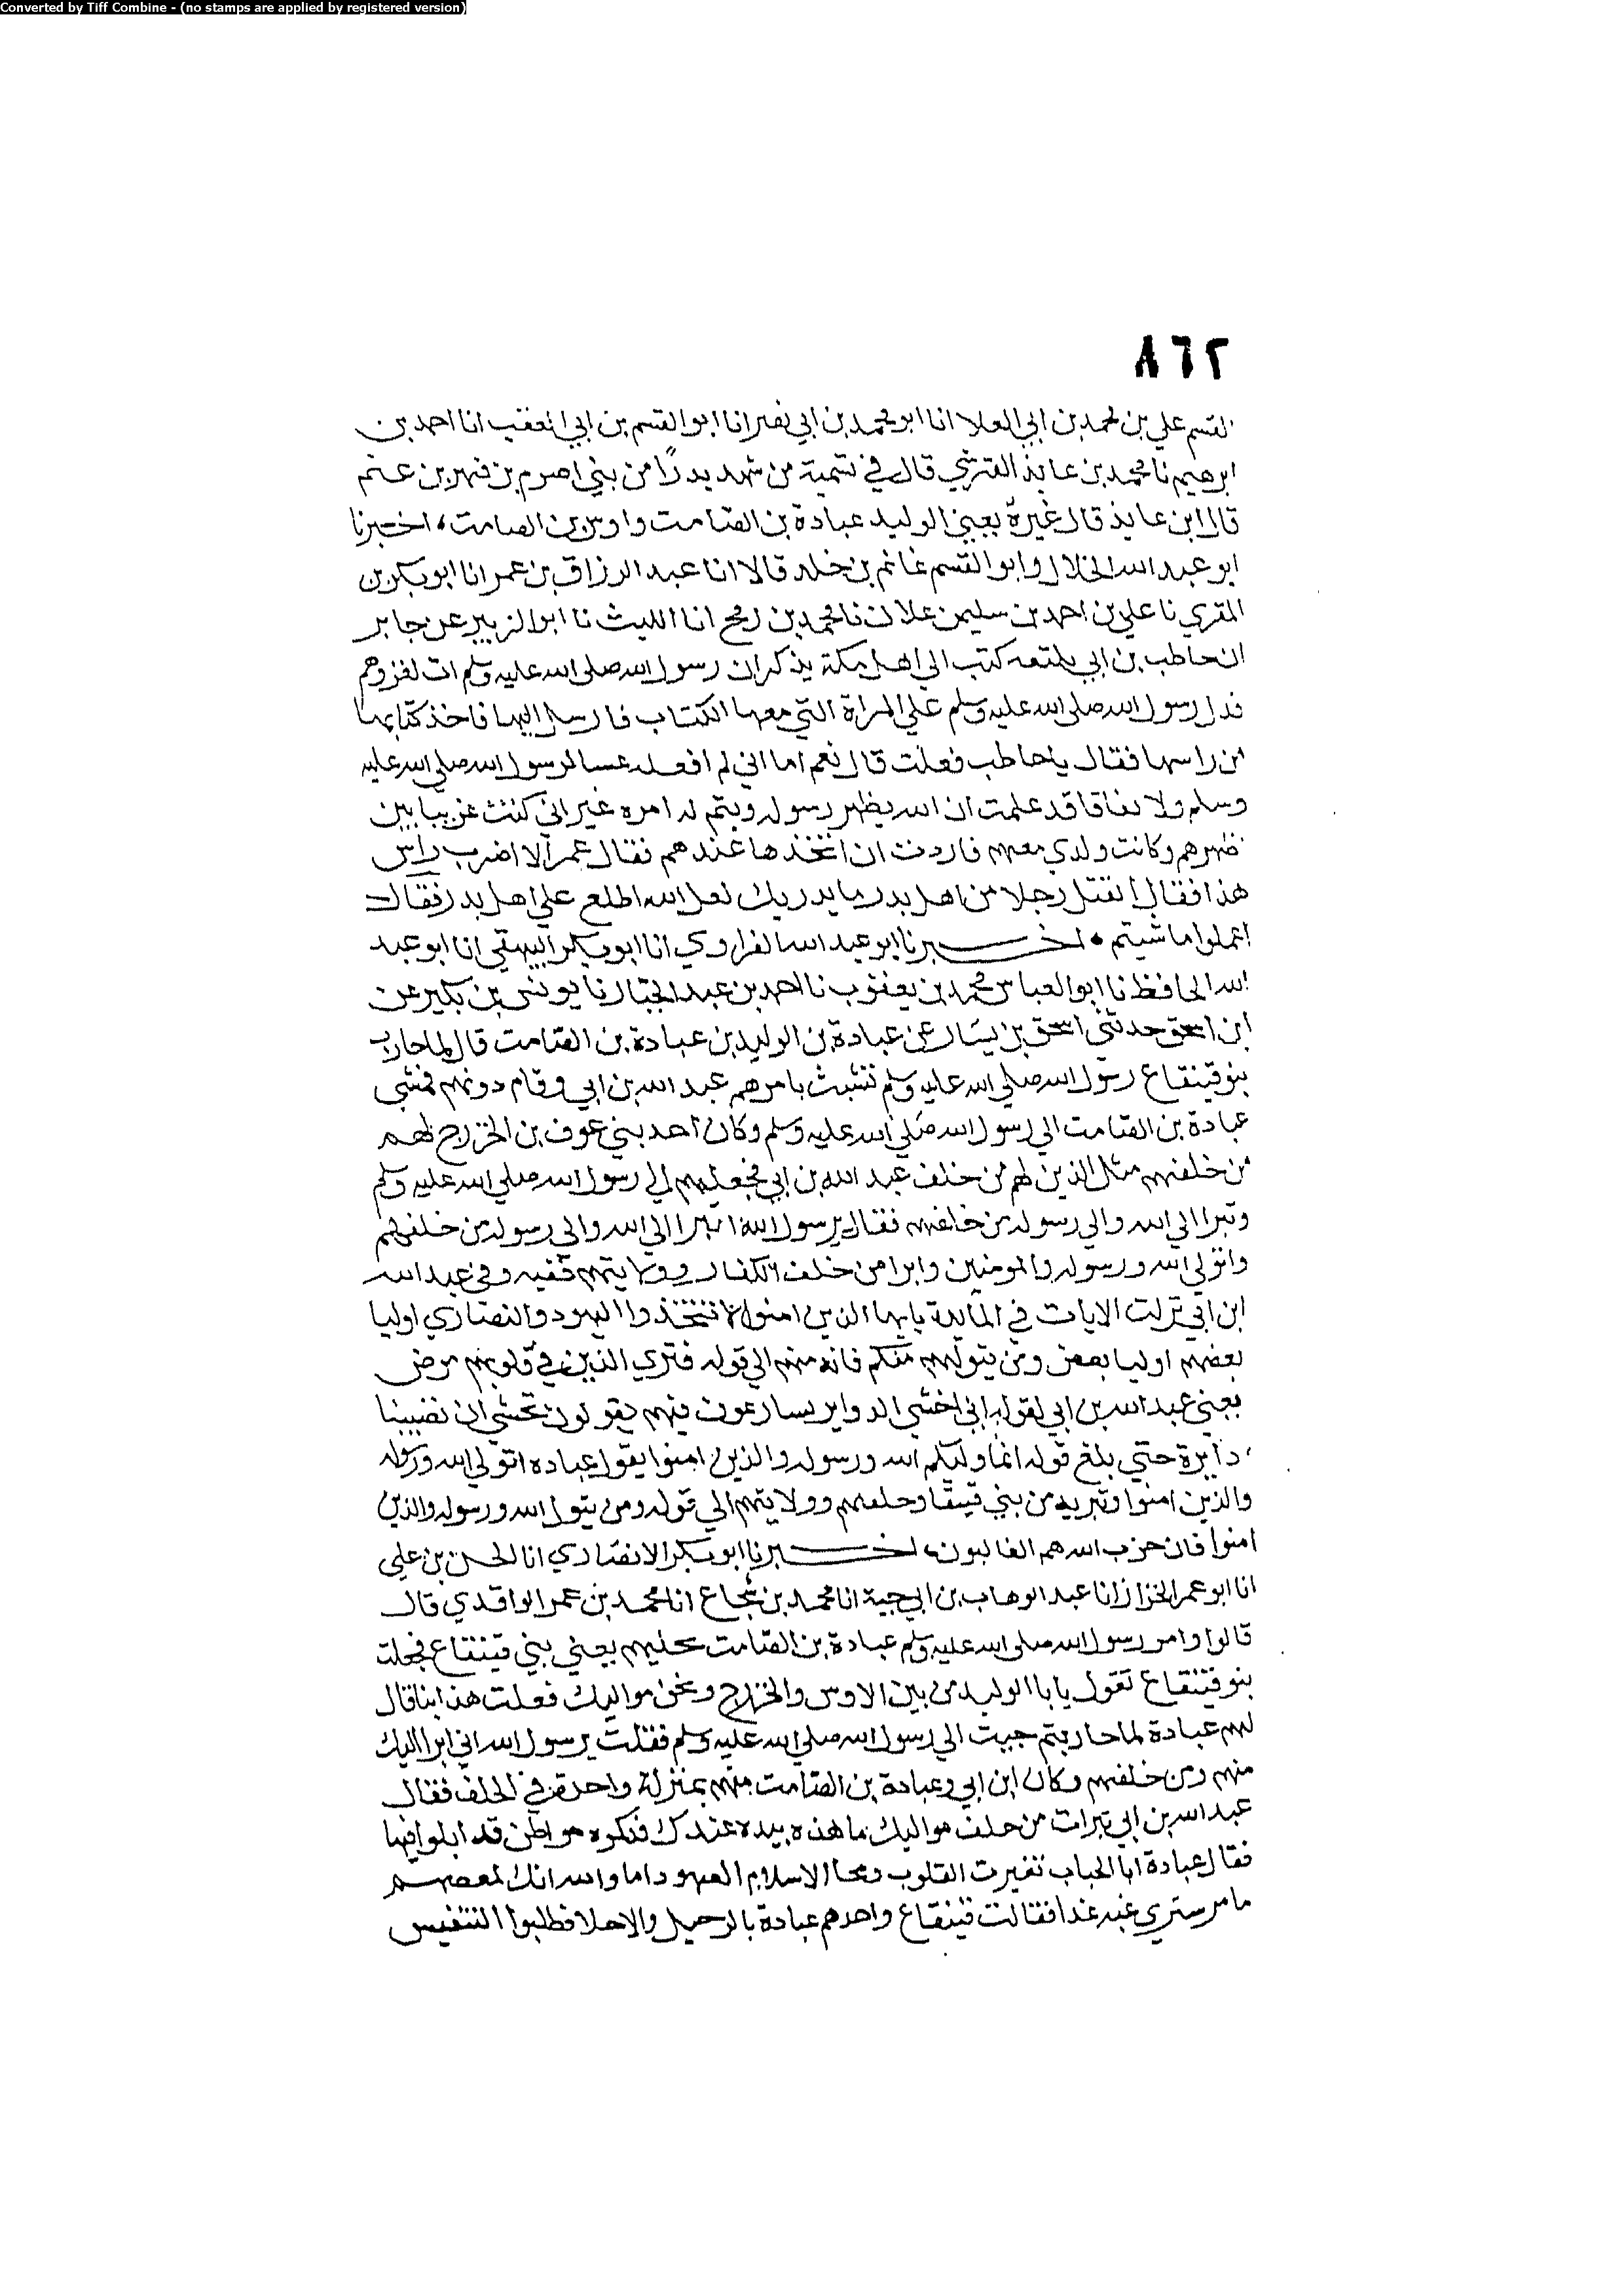 Converted by Tiff Combine - (no stamps are applied by registered version)
٨٦٢
القسم علي بن محمد بن ابي العلا انا ابو محمد بن ابي نصر انا ابو القسم بن ابي العقب انا احمد بن
ابرهيم نا محمد بن عايذ القرشي قال في تسمية من شهد بدرًا من بني اصرم بن فهر بن غنم
قال ابن عايذ قال غيره يعني الوليد عبادة بن الصامت واوس بن الصامت، اخبرنا
ابو عبد الله الخلال وابو القسم غانم بن خلد قالا انا عبد الرزاق بن عمر انا ابو بكر بن
المقري نا علي بن احمد بن سليمن علان نا محمد بن رمح انا الليث نا ابو الزبير عن جابر
ان حاطب بن ابي بلتعه كتب الي اهل مكة يذكر ان رسول الله صلى الله عليه وسلم اتت لغزوهم
فدل رسول الله صلى الله عليه وسلم علي المراة التي معها الكتاب فارسل اليها فاخذ كتابها
من راسها فقال يا حاطب فعلت قال نعم اما اني لم افعله غشا لرسول الله صلى الله عليه
وسلم ولا نفاقا قد علمت ان الله يظهر رسوله ويتم له امره غير اني كنت غريبا بين
ظهرهم وكانت ولدي معهم فاردت ان اتخذها عندهم فقال عمر الا اضرب راس
هذا فقال اتقتل رجلا من اهل بدر ما يدريك لعل الله اطلع علي اهل بدر فقال
اعملوا ما شيتم • اخبرنا ابو عبد الله الفراوي انا ابو بكر البيهقي انا ابو عبد
الله الحافظ نا ابو العباس محمد بن يعقوب نا احمد بن عبد الجبار نا يونس بن بكير عن
ابن اسحق حدثني اسحق بن يسار عن عبادة بن الوليد بن عبادة بن الصامت قال لما حارب
بنو قينقاع رسول الله صلى الله عليه وسلم تشبث بامرهم عبد الله بن ابي وقام دونهم فمشي
عبادة بن الصامت الي رسول الله صلى الله عليه وسلم وكان احد بني عوف بن الخزرج لهم
من خلفهم مثل الذين لهم من خلف عبد الله بن ابي فجعلهم الي رسول الله صلي الله عليه وسلم
وتبرا الي الله والي رسوله من خلفهم فقال يرسول الله اتبرا الي الله والي رسوله من خلفهم
واتولي الله ورسوله والمومنين وابرا من خلف الكفار وولايتهم ففيه وفي عبد الله
ابن ابي نزلت الايات في المايدة يايها الذين امنوا لا تتخذوا اليهود والنصاري اوليا
بعضهم اوليا بعض ومن يتولهم منكم فانه منهم الي قوله فتري الذين في قلوبهم مرض
يعني عبد الله بن ابي لقوله اني اخشي الدواير يسارعون فيهم يقولون نخشي ان تصيبنا
دايرة حتي بلغ قوله انما وليكم الله ورسوله والذين امنوا يقول عباده اتولي الله ورسوله
والذين امنوا وتبريه من بني قينقا وحلفهم وولايتهم الي قوله ومن يتول الله ورسوله والذين
امنوا فان حزب الله هم الغالبون، اخبرنا ابو بكر الانصاري انا الحسن بن علي
انا ابو عمر الخزاز انا عبد الوهاب بن ابي حية انا محمد بن شجاع انا محمد بن عمر الواقدي قال
قالوا وامر رسول الله صلى الله عليه وسلم عبادة بن الصامت يجليهم يعني بني قينقاع فجعلت
بنو قينقاع تقول يا با الوليد من بين الاوس والخزرج ونحن مواليك فعلت هذا بنا قال
لهم عبادة لما حاربتم جيت الي رسول الله صلي الله عليه وسلم فقلت يرسول الله اني ابرا اليك
منهم ومن خلفهم وكان ابن ابي وعبادة بن الصامت منهم بمنزلة واحدة في الحلف فقال
عبد الله بن ابي تبرات من حلف مواليك ما هذه بيده عندك فذكره مواطن قد ابلوا فيها
فقال عبادة ابا الحباب تغيرت القلوب ومحا الاسلام العهود اما والله انك لمعصم
بامر ستري غبه غدا فقالت قينقاع واحدهم عبادة بالرحيل والاجلا فطلبوا التنفيس